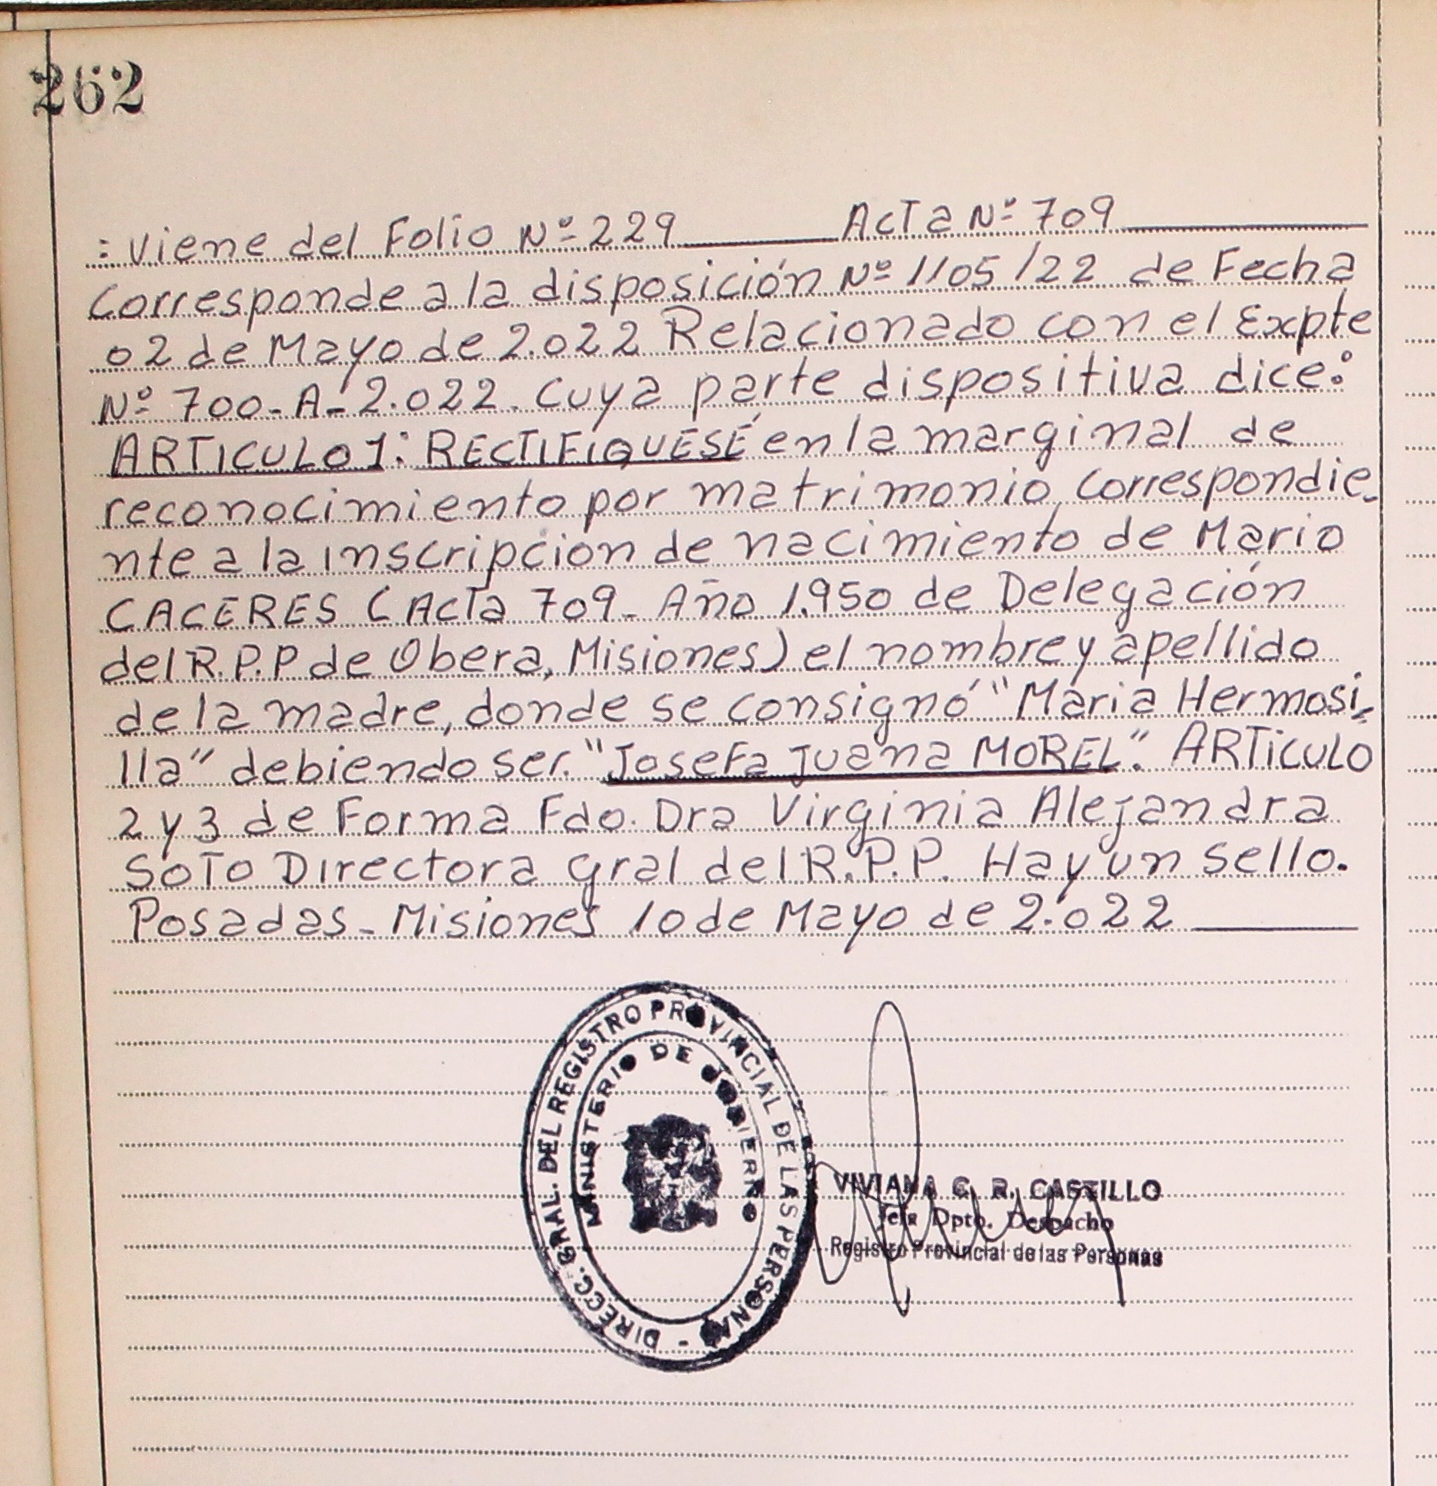 262
: Viene del Folio Nº 229 ActaNº 709
Corresponde a la disposición Nº 1105/22 de Fecha
02 de Mayo de 2.022 Relacionado con el Expte
Nº 700-A-2.022. Cuya parte dispositiva dice:
ARTICULO 1: RECTIFIQUESE en la marginal de
reconocimiento por matrimonio, correspondie-
nte a la inscripción de nacimiento de Mario
CACERES (Acta 709- Año 1.950 de Delegación
del R.P.P de Obera, Misiones) el nombre y apellido
de la madre, donde se consignó "Maria Hermosi-
lla" debiendo ser. "Josefa Juana MOREL". ARTICULO
2 y 3 de Forma Fdo. Dra Virginia Alejandra
SOTO Directora gral del R.P.P. Hay un sello.
Posadas- Misiones 10 de Mayo de 2.022
DIRECC. GRAL. DEL REGISTRO PROVINCIAL DE LAS PERSONAS -
MINISTERIO DE GOBIERNO
VIVIANA C. R. CASTILLO
Jefa Dpto. Despacho
Registro Provincial de las Personas